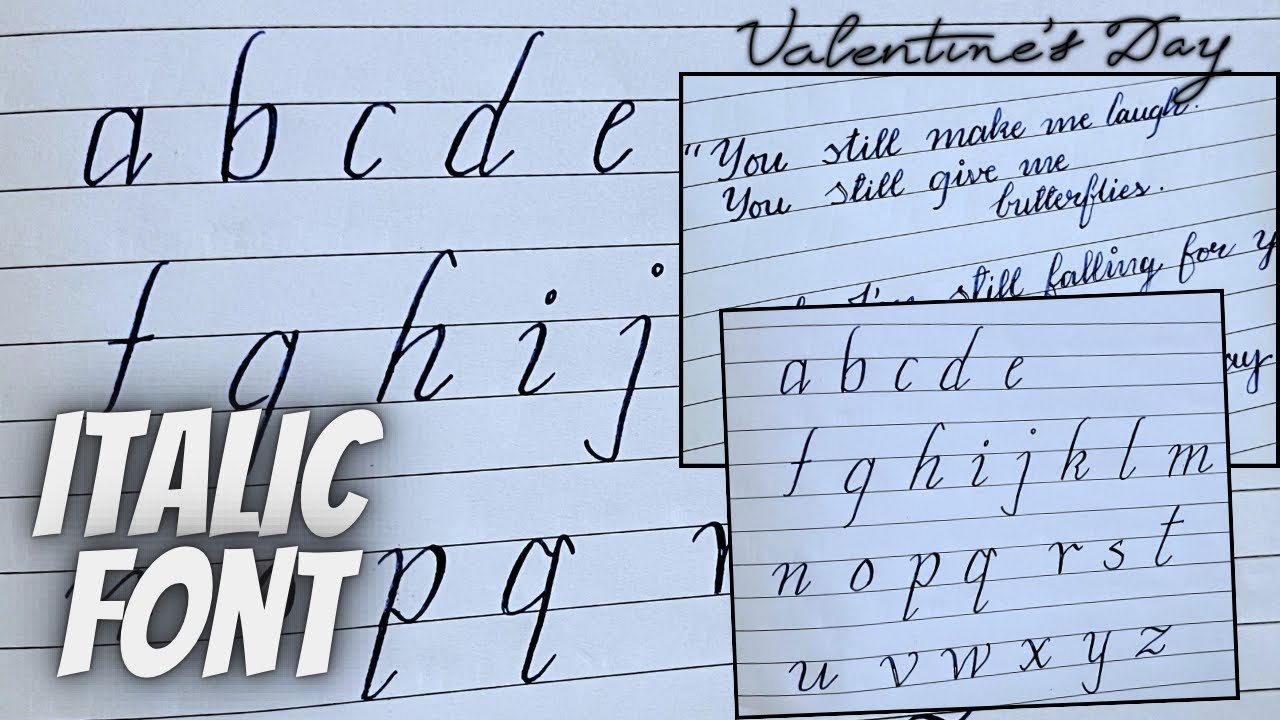 Valentine's Day
a b c d e
f g h i j
p q
ITALIC
FONT
"You still make me laugh.
You still give me
butterflies.
still falling for
a b c d e
f g h i j k l m
n o p q r s t
u v w x y z